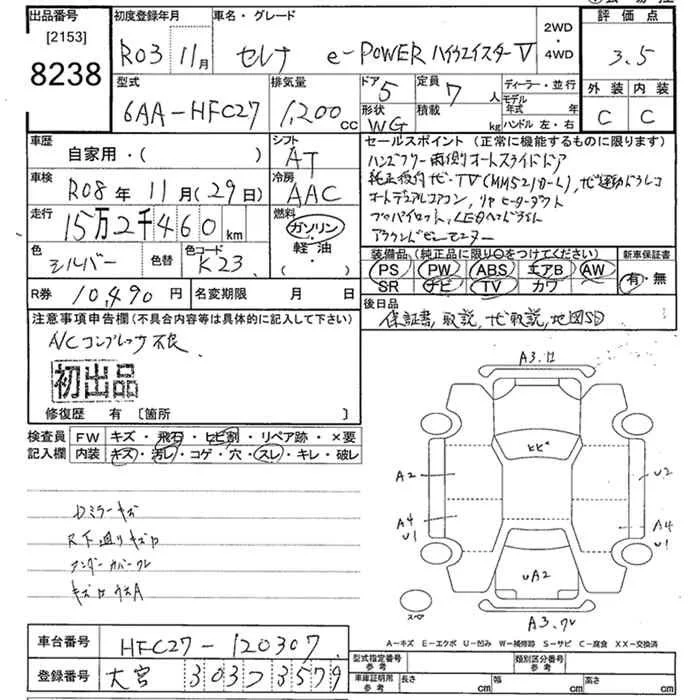 出品番号 初度登録年月 車名・グレード 評価点
[2153]
8238
R03 11月 セレナ e-POWER ハイウェイスターV
2WD・4WD
3.5
型式 排気量 ドア 定員 ディーラー・並行 外装 内装
6AA-HFC27 1,200cc 5 7人 モデル年式 年 C C
形状 積載 ハンドル 左・右
WG kg
車歴 シフト セールスポイント (正常に機能するものに限ります)
自家用・( ) AT ハンズフリー両側オートスライドドア
車検 冷房 純正 ナビ・TV(MM521D-L), ナビ連動ドラレコ
R08年 11月(29日) AAC オートデュアルエアコン, リヤヒーターダクト
走行 燃料 プロパイロット, LEDヘッドライト
15万2千460km ガソリン・軽油・( ) アラウンドビューモニター
色 色替 色コード 装備品 (純正品に限り○をつけてください) 新車保証書
シルバー K23 PS PW ABS エアB AW 有・無
SR ナビ TV カワ
R券 10,490円 名変期限 月 日 後日品
保証書, 取説, ナビ取説, 地図SD
注意事項申告欄 (不具合内容等は具体的に記入して下さい)
A/Cコンプレッサ不良
初出品
修復歴 有 [箇所 ]
検査員記入欄 FW キズ・飛石・ヒビ割・リペア跡・×要
内装 キズ・汚レ・コゲ・穴・スレ・キレ・破レ
A3.U
ヒビ
A2 U2
A4 U1 A4 U1
UA2
スペア
A3.
Dミラーキズ
R下廻りキズ
アンダーカバーワレ
A-キズ E-エクボ U-凹み W-補修跡 S-サビ C-腐食 XX-交換済
車台番号 HFC27-120307
登録番号 大宮 303 フ 3579
型式指定番号 参考 類別区分番号 参考
車庫証明用参考 長さ cm 幅 cm 高さ cm